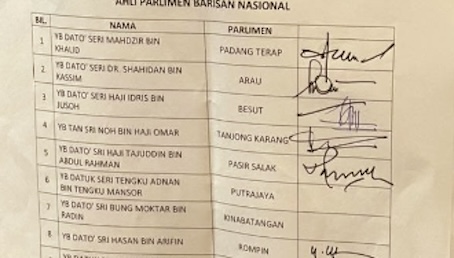 AHLI PARLIMEN BARISAN NASIONAL
BIL. NAMA PARLIMEN
1 YB DATO' SERI MAHDZIR BIN
KHALID PADANG TERAP
2 YB DATO' SERI DR. SHAHIDAN BIN
KASSIM ARAU
3 YB DATO' SERI HAJI IDRIS BIN
JUSOH BESUT
4 YB TAN SRI NOH BIN HAJI OMAR TANJONG KARANG
5 YB DATO' SRI HAJI TAJUDDIN BIN
ABDUL RAHMAN PASIR SALAK
6 YB DATUK SERI TENGKU ADNAN
BIN TENGKU MANSOR PUTRAJAYA
7 YB DATO' SRI BUNG MOKTAR BIN
RADIN KINABATANGAN
8 YB DATO' SRI HASAN BIN ARIFIN ROMPIN